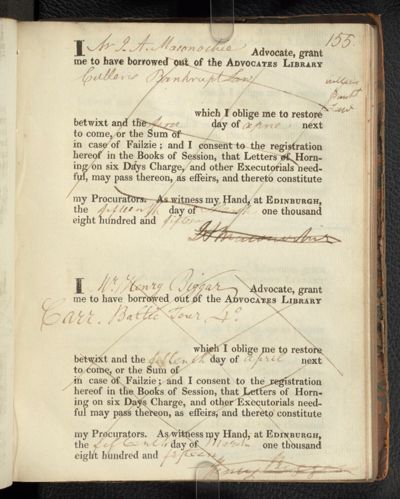 155.
I Mr J. A. Maconochie Advocate, grant
me to have borrowed out of the ADVOCATES LIBRARY
Cullen's Bankrupt Law
Cullen's
Bankt
Law
which I oblige me to restore
betwixt and the day of april next
to come, or the Sum of
in case of Failzie; and I consent to the registration
hereof in the Books of Session, that Letters of Horn-
ing on six Days Charge, and other Executorials need-
ful, may pass thereon, as effeirs, and thereto constitute
my Procurators. As witness my Hand, at EDINBURGH,
the fifteenth day of March one thousand
eight hundred and fifteen
I Mr. Henry Biggar Advocate, grant
me to have borrowed out of the ADVOCATES LIBRARY
Carr. Baltic Tour 4o.
which I oblige me to restore
betwixt and the fifteenth day of april next
to come, or the Sum of
in case of Failzie; and I consent to the registration
hereof in the Books of Session, that Letters of Horn-
ing on six Days Charge, and other Executorials need-
ful may pass thereon, as effeirs, and thereto constitute
my Procurators. As witness my Hand, at EDINBURGH,
the fifteenth day of March one thousand
eight hundred and fifteen
Henry Biggar